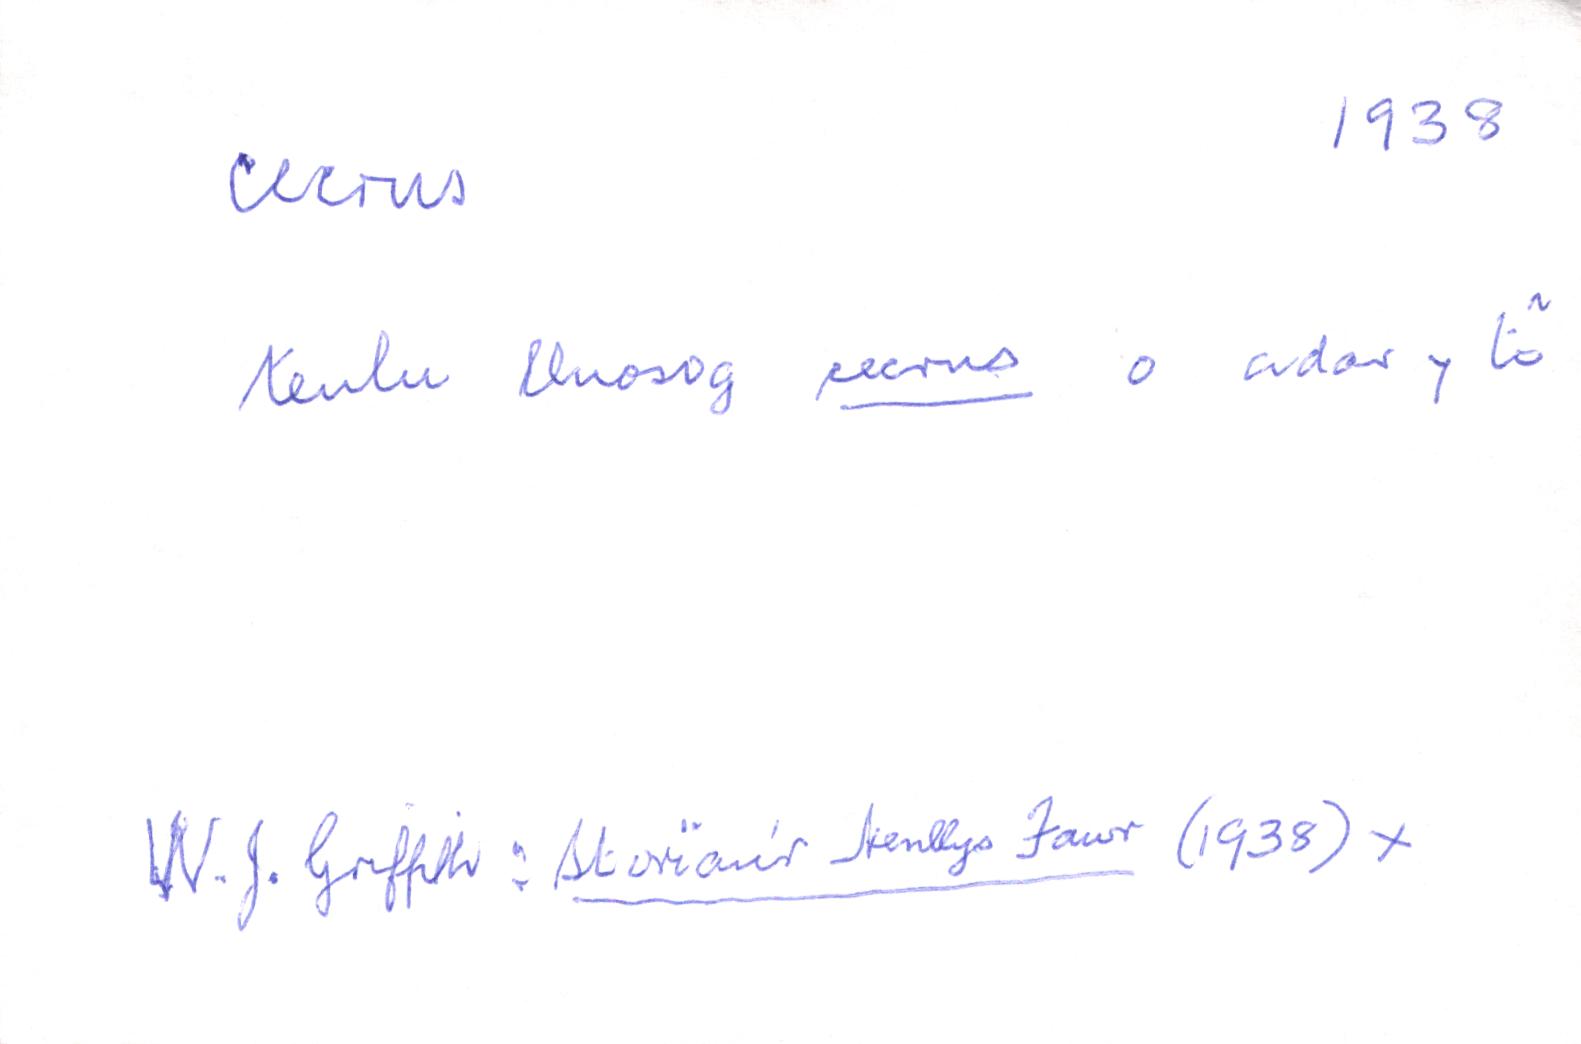 1938
cecrus
teulu lluosog cecrus o adar y tô
W. J. Griffith : Storïau'r Henllys Fawr (1938) x